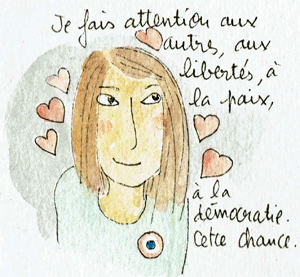 Je fais attention aux
autres, aux
libertés, à
la paix,
à la
démocratie.
Cette chance.